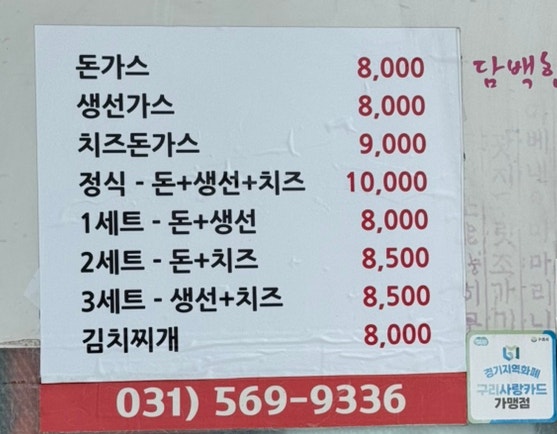 돈가스 8,000
생선가스 8,000
치즈돈가스 9,000
정식 - 돈+생선+치즈 10,000
1세트 - 돈+생선 8,000
2세트 - 돈+치즈 8,500
3세트 - 생선+치즈 8,500
김치찌개 8,000
031) 569-9336
담백한
경기지역화폐
구리사랑카드
가맹점